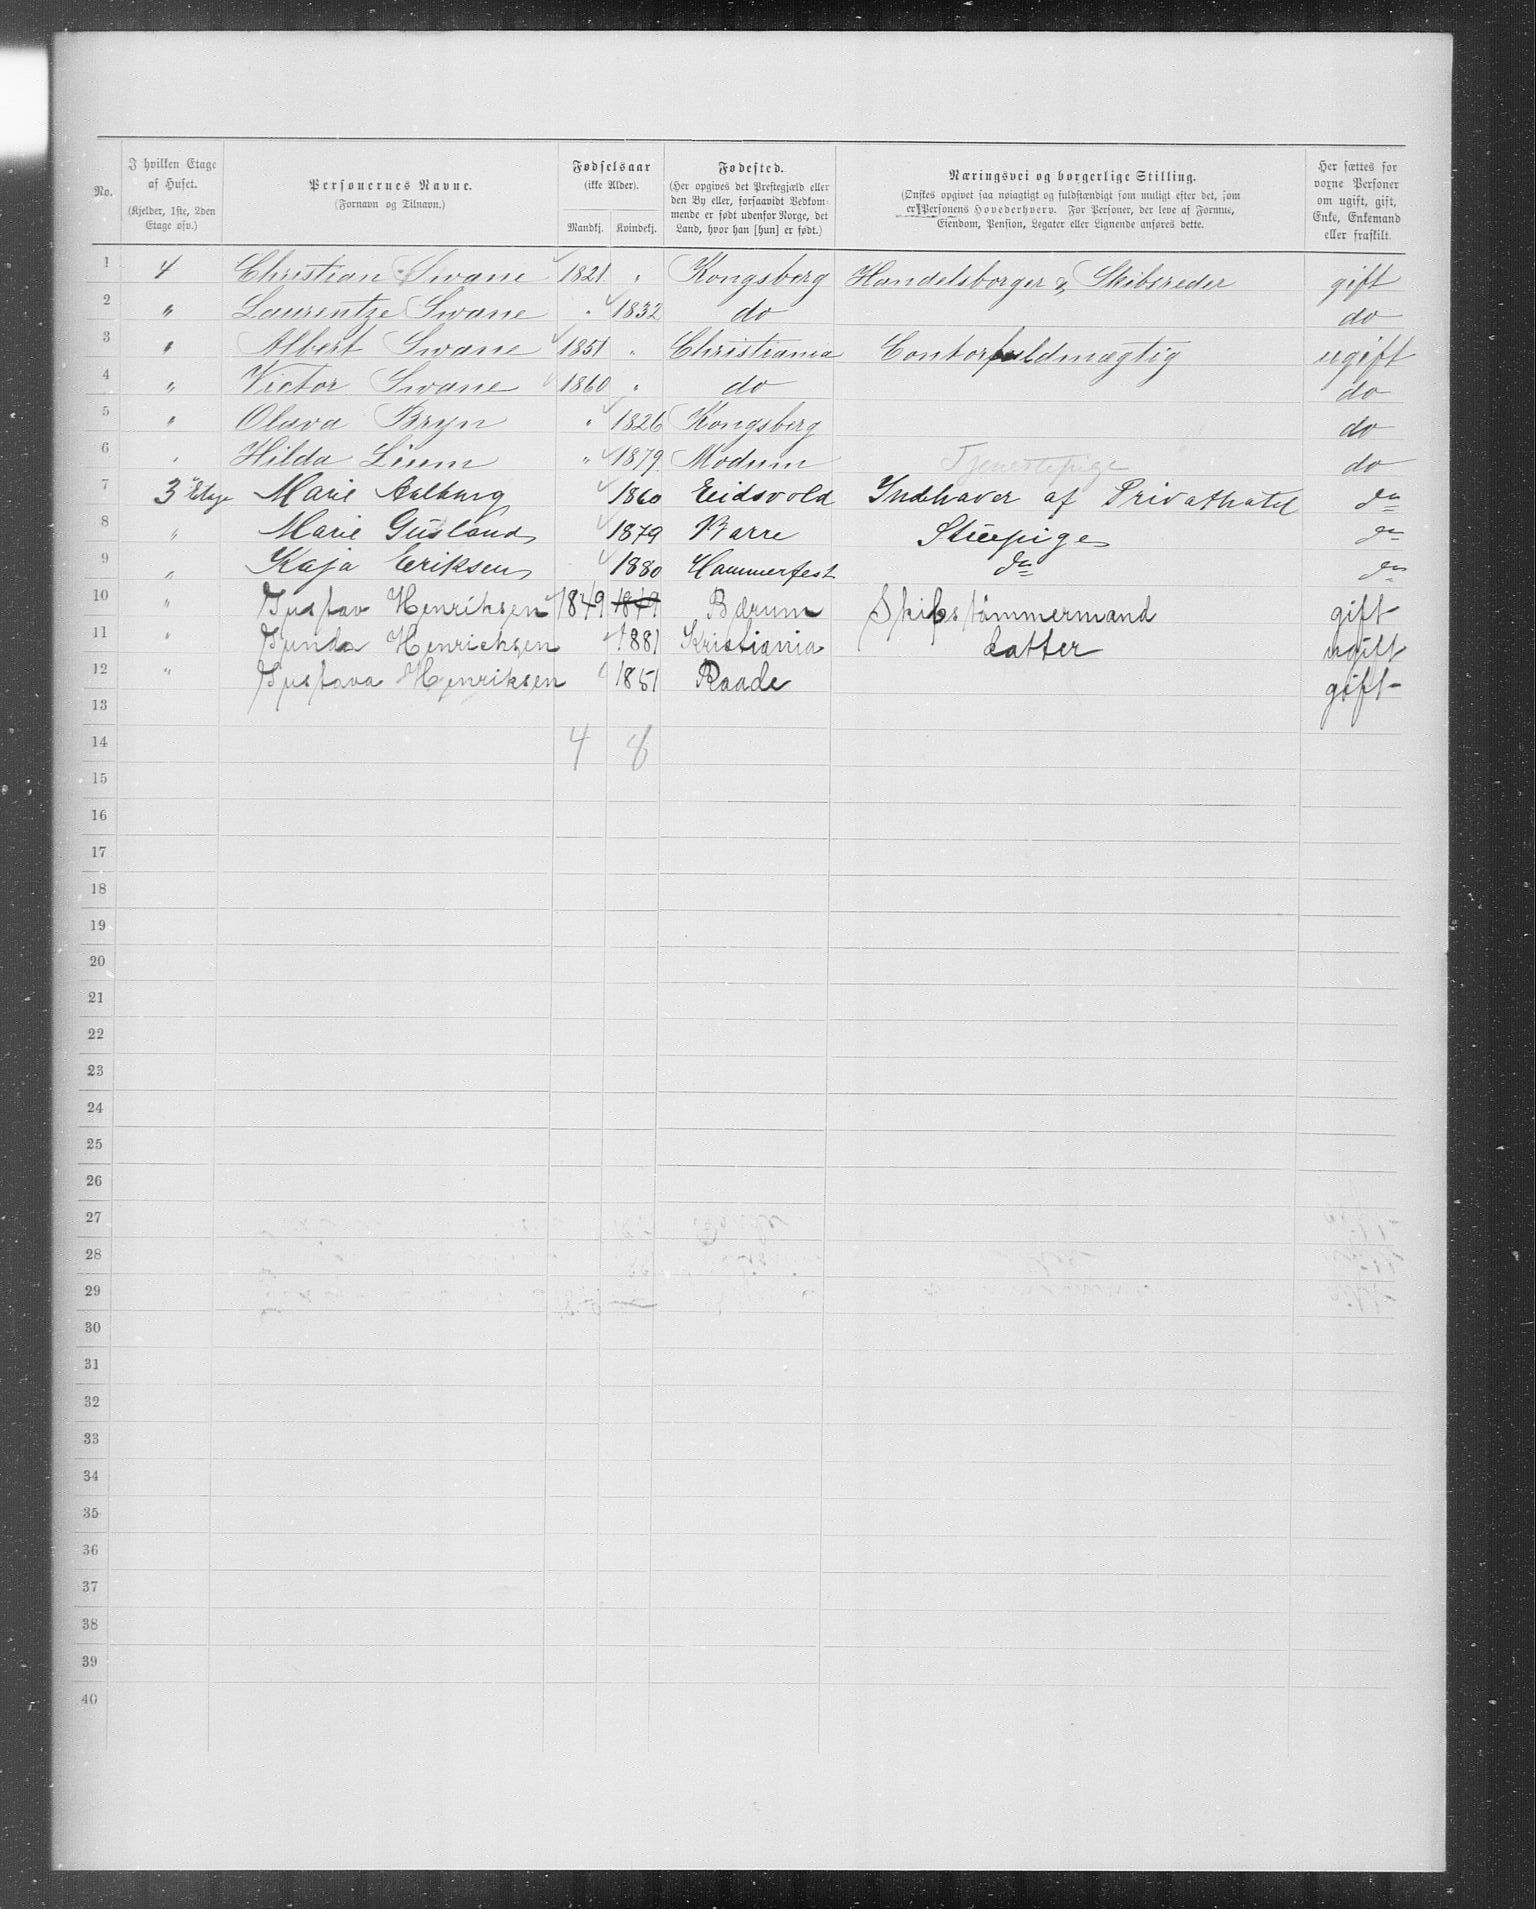 No. | I hvilken Etage af Huset. (Kjelder, 1ste, 2den Etage osv.) | Personernes Navne. (Fornavn og Tilnavn.) | Fødselsaar (ikke Alder). Mandkj. | Kvindekj. | Fødested. (Her opgives det Prestegjæld eller den By eller, forsaavidt Vedkommende er født udenfor Norge, det Land, hvor han [hun] er født.) | Næringsvei og borgerlige Stilling. (Ønskes opgivet saa nøiagtigt og fuldstændigt som muligt efter det, som er Personens Hovederhverv. For Personer, der leve af Formue, Eiendom, Pension, Legater eller Lignende anføres dette.) | Her sættes for voxne Personer om ugift, gift, Enke, Enkemand eller fraskilt.
1 | 4 | Christian Swane | 1821 | " | Kongsberg | Handelsborger & Skibsreder | gift
2 | " | Laurentze Swane | " | 1832 | do | | do
3 | " | Albert Swane | 1851 | " | Christiania | Contorfuldmægtig | ugift
4 | " | Victor Swane | 1860 | " | do | | do
5 | " | Olava Bryn | " | 1826 | Kongsberg | | do
6 | " | Hilda Lium | " | 1879 | Modum | Tjenestepige | do
7 | 3 Etage | Marie Aalburg | | 1860 | Eidsvold | Indehaver af Privathotel | do
8 | " | Marie Gusland | | 1879 | Borre | Stuepige | do
9 | " | Kaja Eriksen | | 1880 | Hammerfest | do | do
10 | " | Gustav Henriksen | 1849 | 1849 | Bærum | Skibstømmermand | gift
11 | " | Gunda Henrichsen | | 1881 | Kristiania | datter | ugift
12 | " | Gustava Henriksen | | 1851 | Raade | | gift
13
14 | | | 4 | 8
15
16
17
18
19
20
21
22
23
24
25
26
27
28
29
30
31
32
33
34
35
36
37
38
39
40